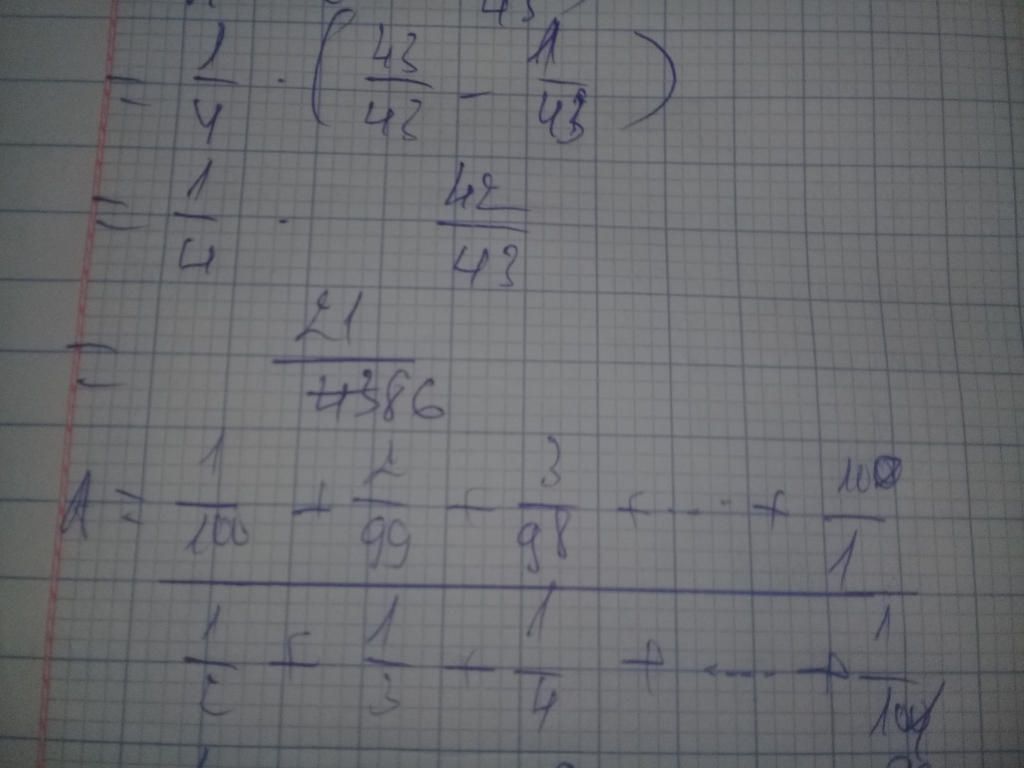 = 1/4 · ( 43/43 - 1/43 )
= 1/4 · 42/43
= 21/86
A = 1/100 + 2/99 + 3/98 + ... + 100/1
1/2 + 1/3 + 1/4 + ... + 1/101